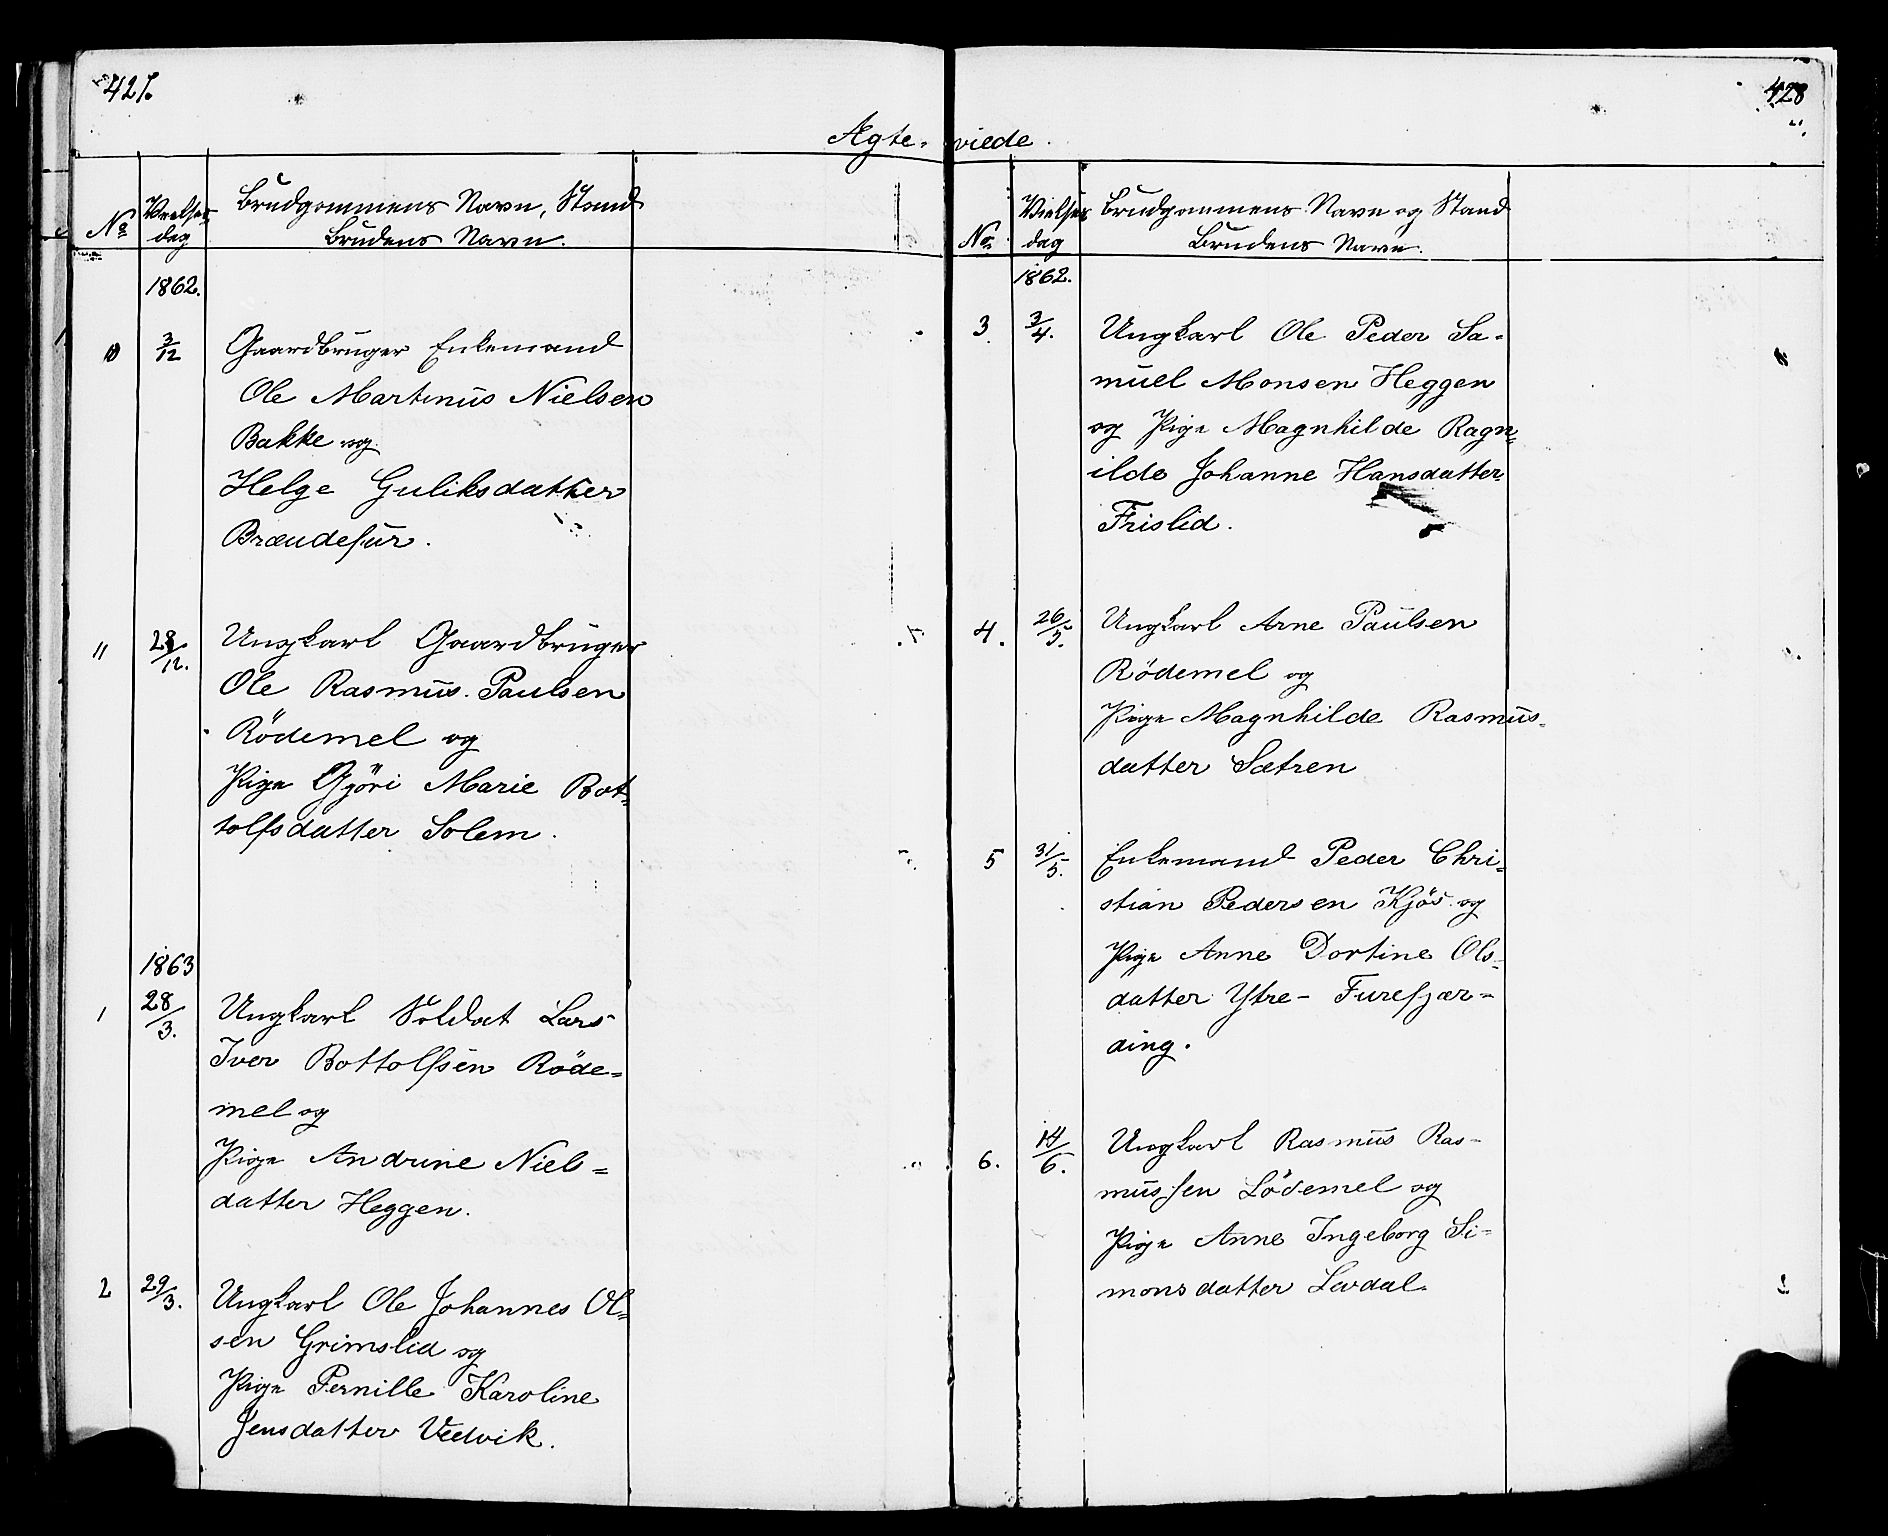 427.
Ægte-
No
Vielses
dag
Brudgommens Navn, Stand
Brudens Navn.
1862.
10
3/12
Gaardbruger Enkemand
Ole Martinus Nielsen
Bakke og
Helge Guliksdatter
Brændefur.
11
28/12.
Ungkarl Gaardbruger
Ole Rasmus Paulsen
Rödemel og
Pige Gjöri Marie Bot-
tolfsdatter Solem.
1863
1
28/3.
Ungkarl Soldat Lars
Iver Bottolfsen Röde=
mel og
Pige Andrine Niels=
datter Heggen.
2
29/3.
Ungkarl Ole Johannes Ol=
sen Grimslid og
Pige Pernille Karoline
Jensdatter Vedvik.
428
viede.
No
Vielses
dag
Brudgommens Navn og Stand
Brudens Navn.
1862.
3
3/4.
Ungkarl Ole Peder Sa-
muel Monsen Heggen
og Pige Magnhilde Ragn=
ilde Johanne Hansdatter
Frislid.
4.
26/5.
Ungkarl Arne Paulsen
Rödemel og
Pige Magnhilde Rasmus-
datter Sætren
5
31/5.
Enkemand Peder Chri-
stian Pedersen Kjös og
Pige Anne Dortine Ols-
datter Ytre-Furefjær-
ding.
6.
14/6.
Ungkarl Rasmus Ras-
mussen Lödemel og
Pige Anne Ingeborg Si-
monsdatter Lærdal.